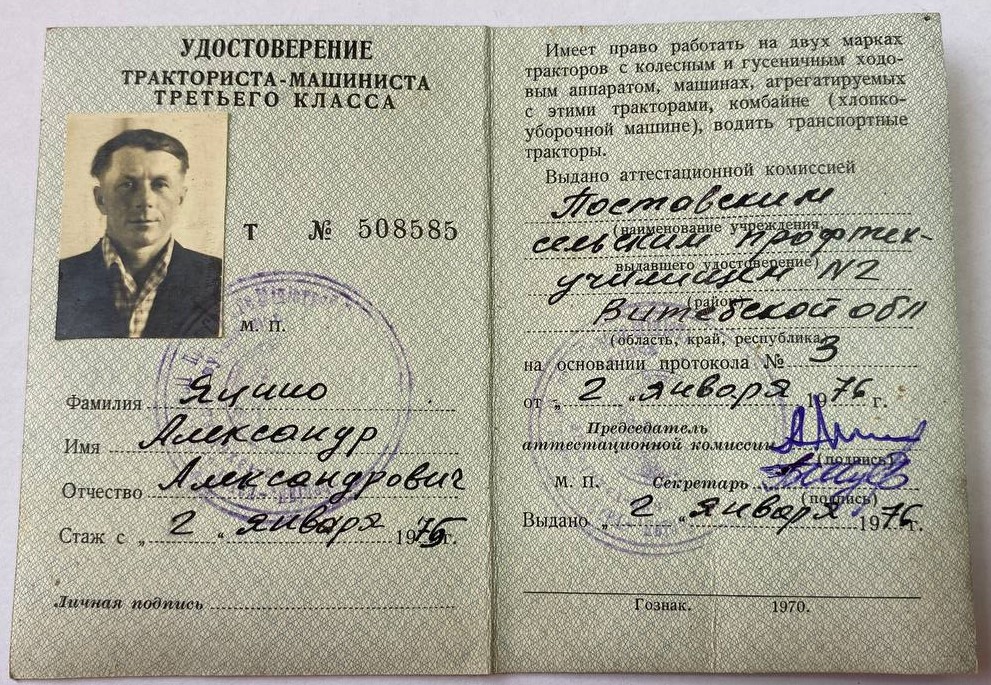 УДОСТОВЕРЕНИЕ
ТРАКТОРИСТА-МАШИНИСТА
ТРЕТЬЕГО КЛАССА
Т № 508585
М. П.
Фамилия Яцино
Имя Александр
Отчество Александрович
Стаж с „ 2 “ января 1976 г.
Личная подпись
Имеет право работать на двух марках
тракторов с колесным и гусеничным ходо-
вым аппаратом, машинах, агрегатируемых
с этими тракторами, комбайне (хлопко-
уборочной машине), водить транспортные
тракторы.
Выдано аттестационной комиссией
Поставским
(наименование учреждения,
сельским профтех-
выдавшего удостоверение)
училищем N2
(район)
Витебской обл
(область, край, республика)
на основании протокола № 3
от „ 2 “ января 1976 г.
Председатель
аттестационной комиссии
(подпись)
М. П. Секретарь
(подпись)
Выдано „ 2 “ января 1976 г.
Гознак. 1970.